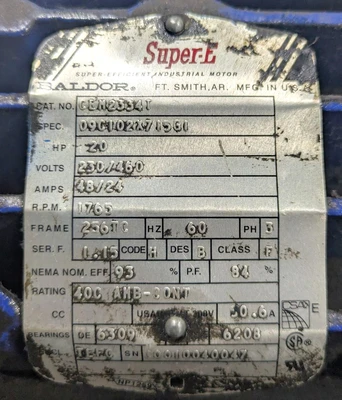 Super-E
SUPER-EFFICIENT INDUSTRIAL MOTOR
BALDOR FT. SMITH, AR. MFG IN U.S.
CAT. NO. CEM2334T
SPEC.
HP 20
VOLTS 230/460
AMPS 48/24
R.P.M. 1765
FRAME 256TC HZ 60 PH 3
SER. F. 1.15 CODE H DES B CLASS F
NEMA NOM. EFF. 93 % P.F. 84 %
RATING 40C AMB-CONT
CC 50.6A
BEARINGS DE 6309 6208
TEFC SN